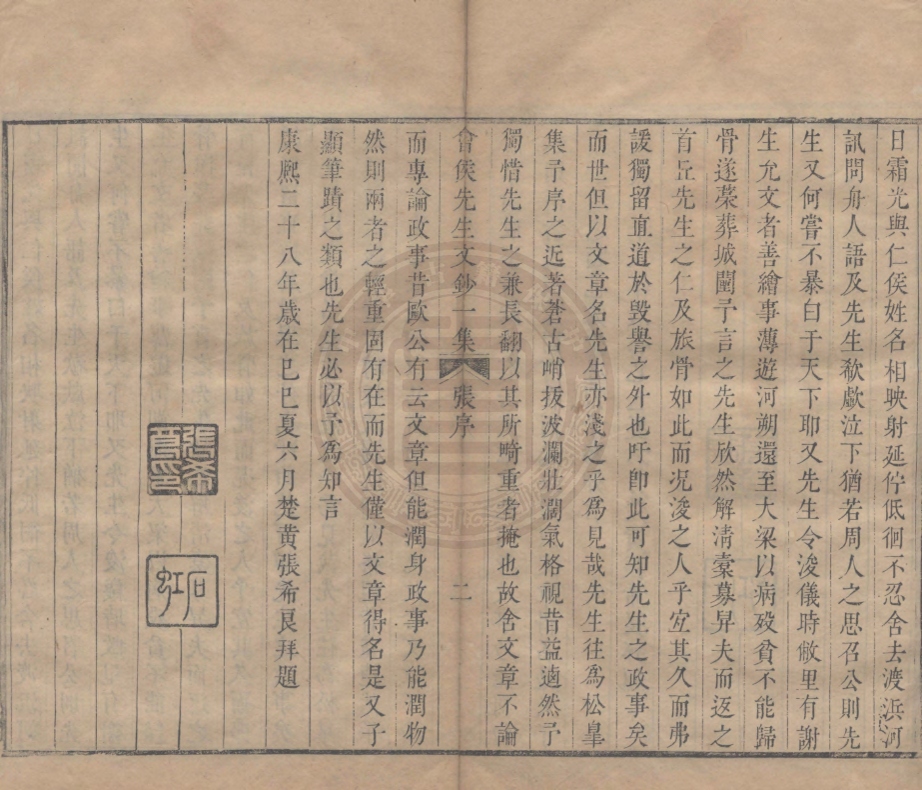 日霜光與仁侯姓名相映射延佇低徊不忍舍去渡浜河
訊問舟人語及先生欷歔泣下猶若周人之思召公則先
生又何嘗不暴白于天下耶又先生令浚儀時敝里有謝
生允文者善繪事薄遊河朔還至大梁以病歿貧不能歸
骨遂藁葬城闉予言之先生欣然解淸橐募舁夫而返之
首丘先生之仁及旅骨如此而况浚之人乎宜其久而弗
諼獨留直道於毀譽之外也吁卽此可知先生之政事矣
而世但以文章名先生亦淺之乎爲見哉先生往爲松臯
集予序之近著蒼古峭拔波瀾壯濶氣格視昔益遒然予
獨惜先生之兼長翻以其所畸重者掩也故舍文章不論
會侯先生文鈔一集 張序 二
而專論政事昔歐公有云文章但能潤身政事乃能潤物
然則兩者之輕重固有在而先生僅以文章得名是又子
顯筆蹟之類也先生必以予爲知言
康熈二十八年歲在己巳夏六月楚黃張希良拜題
張希良印
石虹